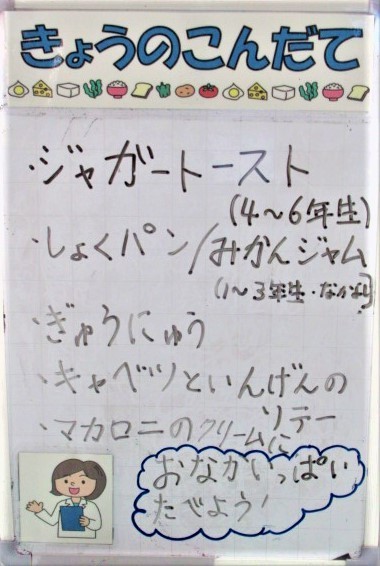 きょうのこんだて
・ジャガートースト
(4～6年生)
・しょくパン/みかんジャム
(1～3年生・なかよし)
・ぎゅうにゅう
・キャベツといんげんの
ソテー
・マカロニのクリームに
おなかいっぱい
たべよう!